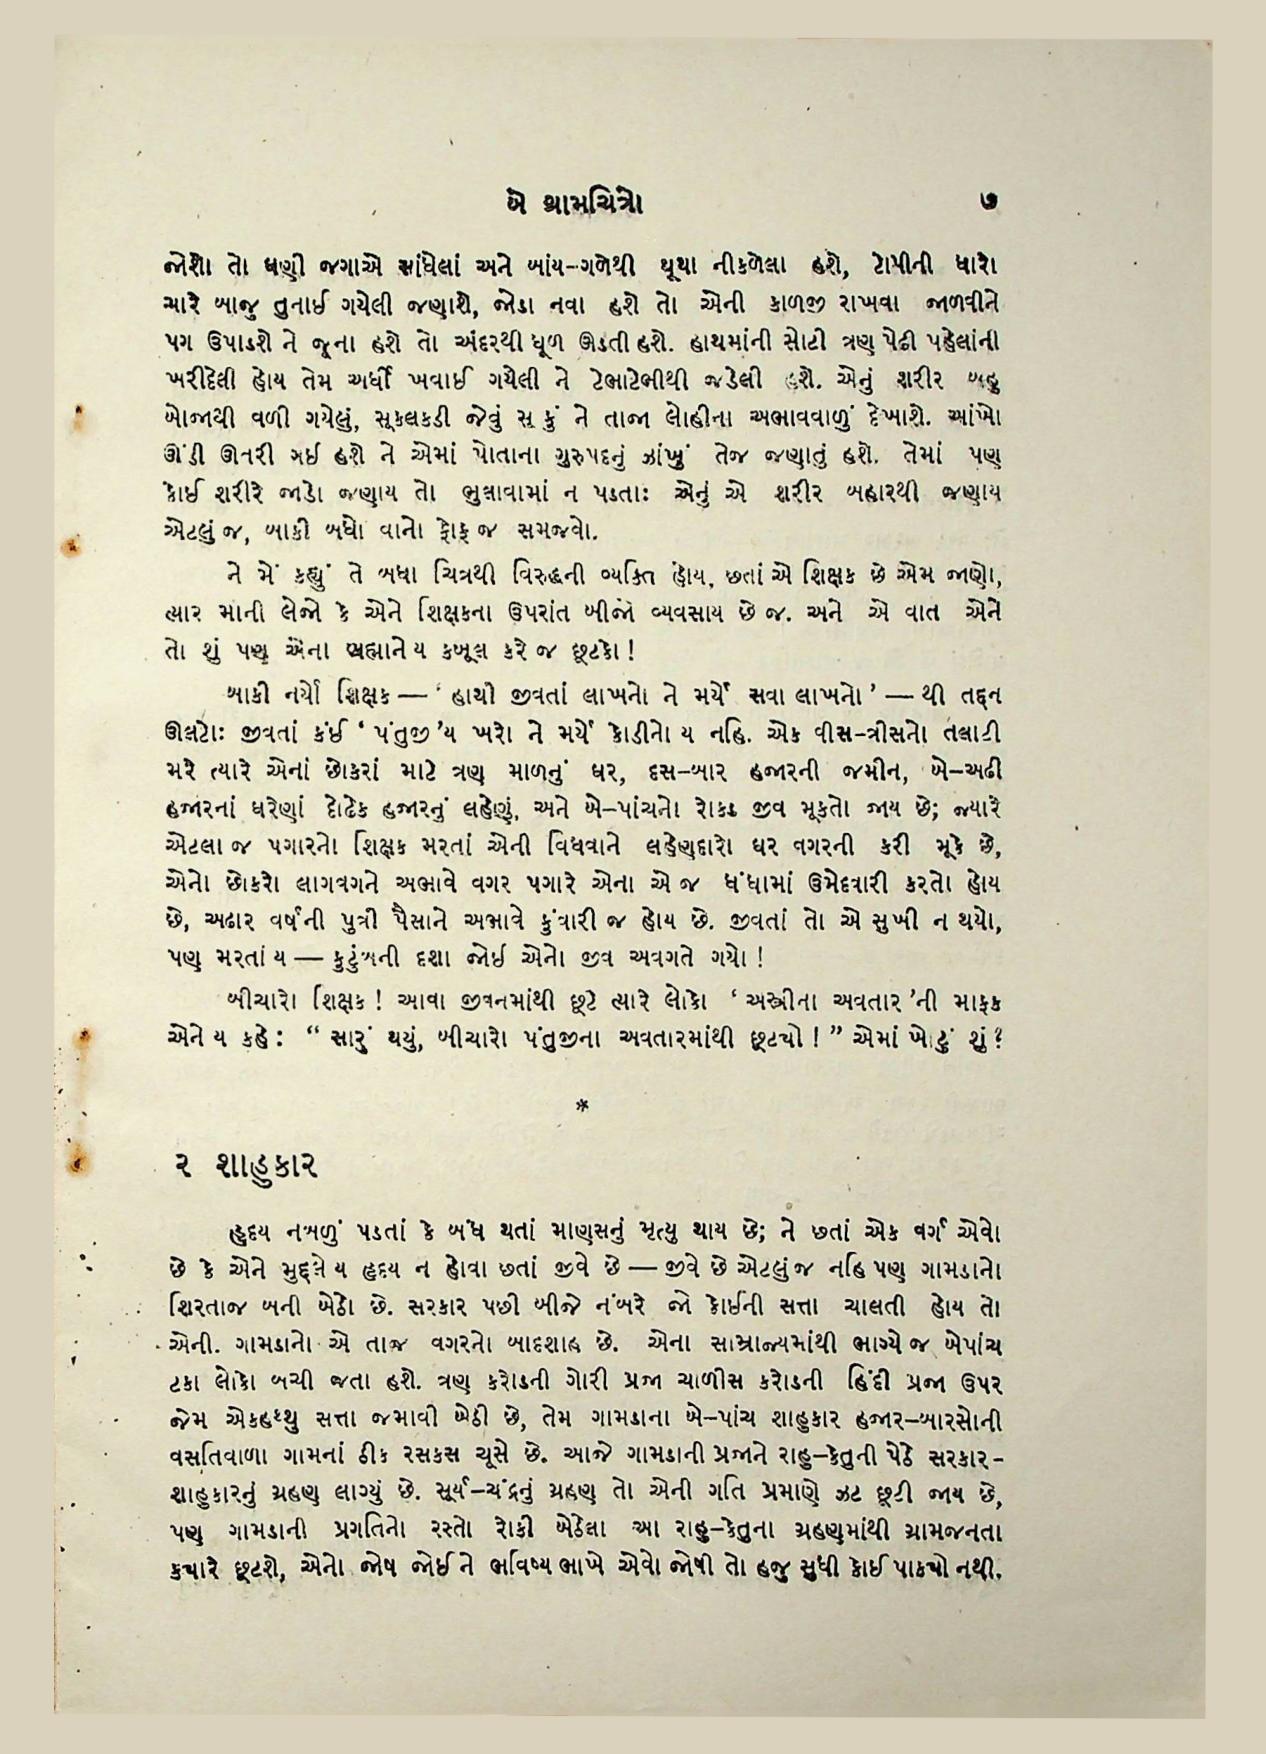 બે ગ્રામચિત્રો ૭
જોશો તો ઘણી જગાએ સાંધેલાં અને બાંય-ગળેથી થૂથા નીકળેલા હશે, ટોપીની ધારો
ચારે બાજુ તુનાઈ ગયેલી જણાશે, જોડા નવા હશે તો એની કાળજી રાખવા જાળવીને
પગ ઉપાડશે ને જૂના હશે તો અંદરથી ધૂળ ઊડતી હશે. હાથમાંની સોટી ત્રણ પેઢી પહેલાંની
ખરીદેલી હોય તેમ અર્ધી ખવાઈ ગયેલી ને ટેભાટેભીથી જડેલી હશે. એનું શરીર બહુ
બોજાથી વળી ગયેલું, સૂકલકડી જેવું સૂકું ને તાજા લોહીના અભાવવાળું દેખાશે. આંખો
ઊંડી ઊતરી ગઈ હશે ને એમાં પોતાના ગુરુપદનું ઝાંખું તેજ જણાતું હશે. તેમાં પણ
કોઈ શરીરે જાડો જણાય તો ભુલાવામાં ન પડતાઃ એનું એ શરીર બહારથી જણાય
એટલું જ, બાકી બધો વાનો ફોફ જ સમજવો.
ને મેં કહ્યું તે બધા ચિત્રથી વિરુદ્ધની વ્યક્તિ હોય, છતાં એ શિક્ષક છે એમ જાણો,
ત્યાર માની લેજો કે એને શિક્ષકના ઉપરાંત બીજો વ્યવસાય છે જ. અને એ વાત એને
તો શું પણ એના બ્રહ્માને ય કબૂલ કરે જ છૂટકો!
બાકી નર્યો શિક્ષક — ‘હાથી જીવતાં લાખનો ને મર્યે સવા લાખનો’ — થી તદ્દન
ઊલટોઃ જીવતાં કંઈ ‘પંતુજી’ય ખરો ને મર્યે કોડીનો ય નહિ. એક વીસ-ત્રીસનો તલાટી
મરે ત્યારે એનાં છોકરાં માટે ત્રણ માળનું ઘર, દસ-બાર હજારની જમીન, બે-અઢી
હજારનાં ઘરેણાં દોઢેક હજારનું લહેણું, અને બે-પાંચનો રોકડ જીવ મૂકતો જાય છે; જ્યારે
એટલા જ પગારનો શિક્ષક મરતાં એની વિધવાને લહેણદારો ઘર વગરની કરી મૂકે છે,
એનો છોકરો લાગવગને અભાવે વગર પગારે એના એ જ ધંધામાં ઉમેદવારી કરતો હોય
છે, અઢાર વર્ષની પુત્રી પૈસાને અભાવે કુંવારી જ હોય છે. જીવતાં તો એ સુખી ન થયો,
પણ મરતાં ય — કુટુંબની દશા જોઈ એનો જીવ અવગતે ગયો!
બીચારો શિક્ષક! આવા જીવનમાંથી છૂટે ત્યારે લોકો ‘અસ્ત્રીના અવતાર’ની માફક
એને ય કહે: “સારું થયું, બીચારો પંતુજીના અવતારમાંથી છૂટ્યો!” એમાં ખોટું શું?
*
૨ શાહુકાર
હૃદય નબળું પડતાં કે બંધ થતાં માણસનું મૃત્યુ થાય છે; ને છતાં એક વર્ગ એવો
છે કે એને મુદ્દલે ય હૃદય ન હોવા છતાં જીવે છે — જીવે છે એટલું જ નહિ પણ ગામડાનો
શિરતાજ બની બેઠો છે. સરકાર પછી બીજે નંબરે જો કોઈની સત્તા ચાલતી હોય તો
એની. ગામડાનો એ તાજ વગરનો બાદશાહ છે. એના સામ્રાજ્યમાંથી ભાગ્યે જ બેપાંચ
ટકા લોકો બચી જતા હશે. ત્રણ કરોડની ગોરી પ્રજા ચાળીસ કરોડની હિંદી પ્રજા ઉપર
જેમ એકહથ્થુ સત્તા જમાવી બેઠી છે, તેમ ગામડાના બે-પાંચ શાહુકાર હજાર-બારસોની
વસતિવાળા ગામનાં ઠીક રસકસ ચૂસે છે. આજે ગામડાની પ્રજાને રાહુ-કેતુની પેઠે સરકાર-
શાહુકારનું ગ્રહણ લાગ્યું છે. સૂર્ય-ચંદ્રનું ગ્રહણ તો એની ગતિ પ્રમાણે ઝટ છૂટી જાય છે,
પણ ગામડાની પ્રગતિનો રસ્તો રોકી બેઠેલા આ રાહુ-કેતુના ગ્રહણમાંથી ગ્રામજનતા
ક્યારે છૂટશે, એનો જોષ જોઈને ભવિષ્ય ભાખે એવો જોષી તો હજુ સુધી કોઈ પાક્યો નથી.